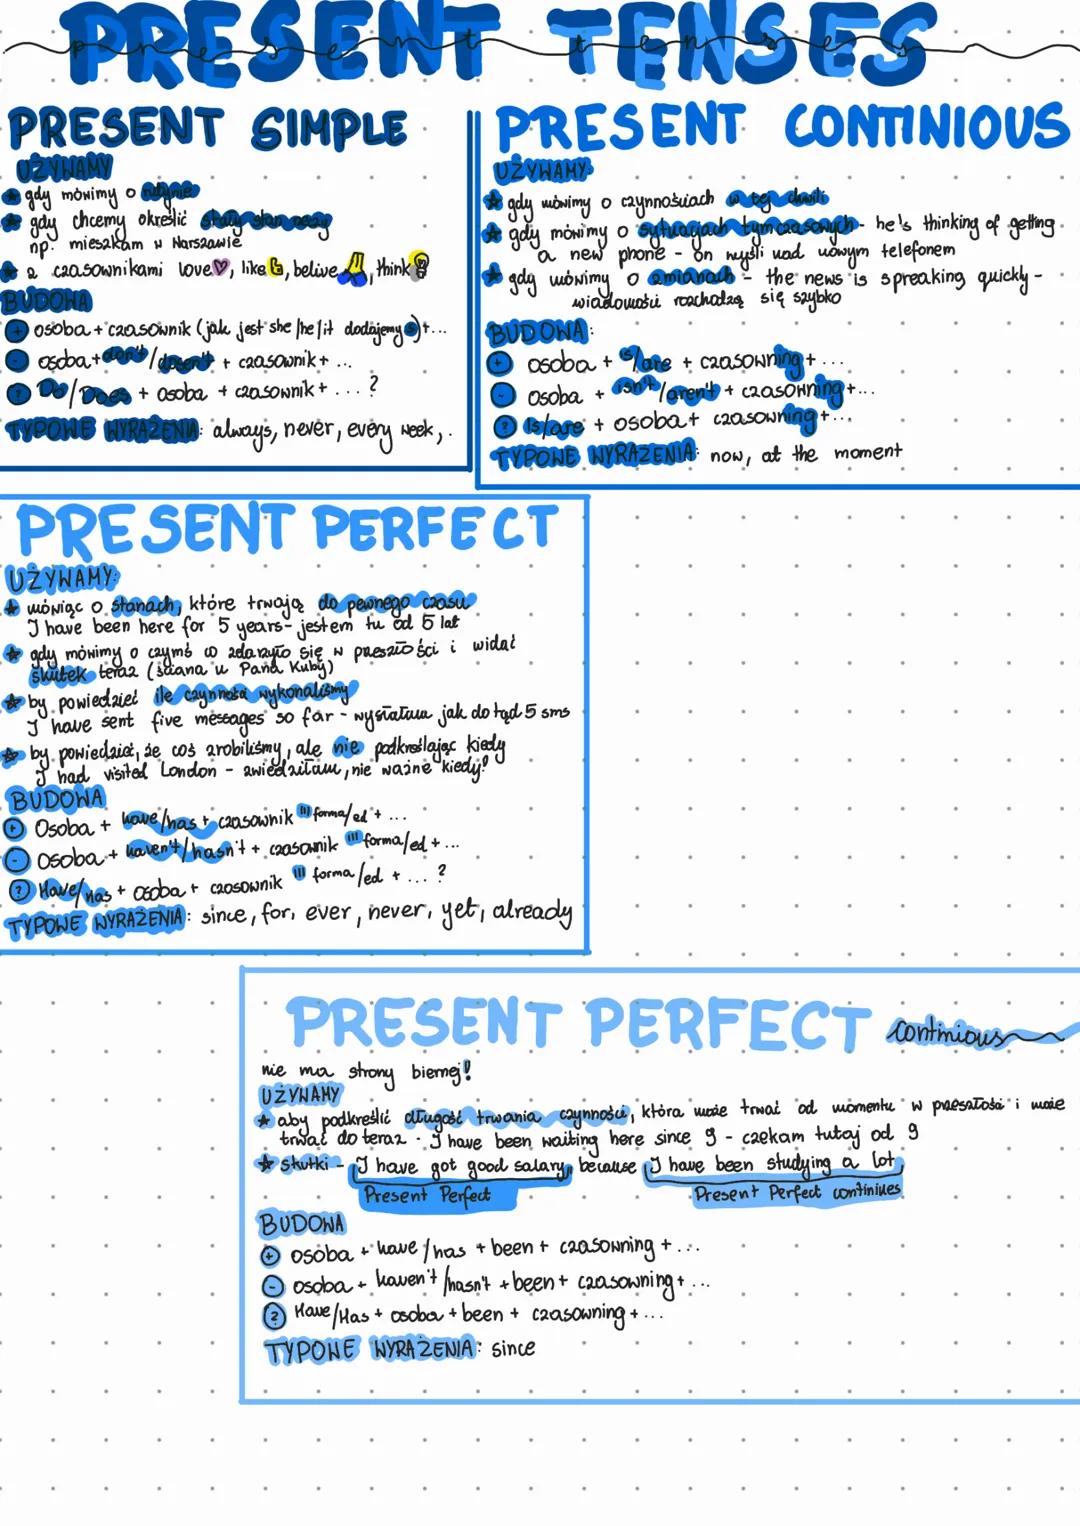 PRESENT TENSES
present tenses
PRESENT SIMPLE
UŻYWAMY
gdy mówimy o rutynie
gdy chcemy określić stały stan rzeczy
np. mieszkam w Warszawie
z czasownikami love, like, belive, think
BUDOWA
+ osoba + czasownik (jak jest she/he/it dodajemy s) + ...
- osoba + don't/doesn't + czasownik + ...
? Do/Does + osoba + czasownik + ... ?
TYPOWE WYRAŻENIA: always, never, every week, .
PRESENT CONTINIOUS
UŻYWAMY
gdy mówimy o czynnościach w tej chwili
gdy mówimy o sytuacjach tymczasowych - he's thinking of getting
a new phone - on myśli nad nowym telefonem
gdy mówimy o zmianach - the news is spreaking quickly -
wiadomości rozchodzą się szybko
BUDOWA:
+ osoba + is/are + czasowning + ...
- osoba + isn't/aren't + czasowning + ...
? Is/are + osoba + czasowning + ...
TYPOWE WYRAŻENIA: now, at the moment
PRESENT PERFECT
UŻYWAMY:
mówiąc o stanach, które trwają do pewnego czasu
I have been here for 5 years - jestem tu od 5 lat
gdy mówimy o czymś co zdarzyło się w przeszłości i widać
skutek teraz (ściana u Pana Kuby)
by powiedzieć ile czynności wykonaliśmy
I have sent five messages so far - wysłałam jak dotąd 5 sms
by powiedzieć, że coś zrobiliśmy, ale nie podkreślając kiedy
I had visited London - zwiedziłam, nie ważne kiedy!
BUDOWA
+ Osoba + have/has + czasownik III forma/ed + ...
- osoba + haven't/hasn't + czasownik III forma/ed + ...
? Have/has + osoba + czasownik III forma/ed + ... ?
TYPOWE WYRAŻENIA: since, for, ever, never, yet, already
PRESENT PERFECT continious
nie ma strony biernej!
UŻYWAMY
aby podkreślić długość trwania czynności, która może trwać od momentu w przeszłości i może
trwać do teraz. I have been waiting here since 9 - czekam tutaj od 9
skutki - I have got good salary, because I have been studying a lot,
Present Perfect Present Perfect continiues
BUDOWA
+ osoba + have/has + been + czasowning + ...
- osoba + haven't/hasn't + been + czasowning + ...
? Have/Has + osoba + been + czasowning + ...
TYPOWE WYRAŻENIA: since